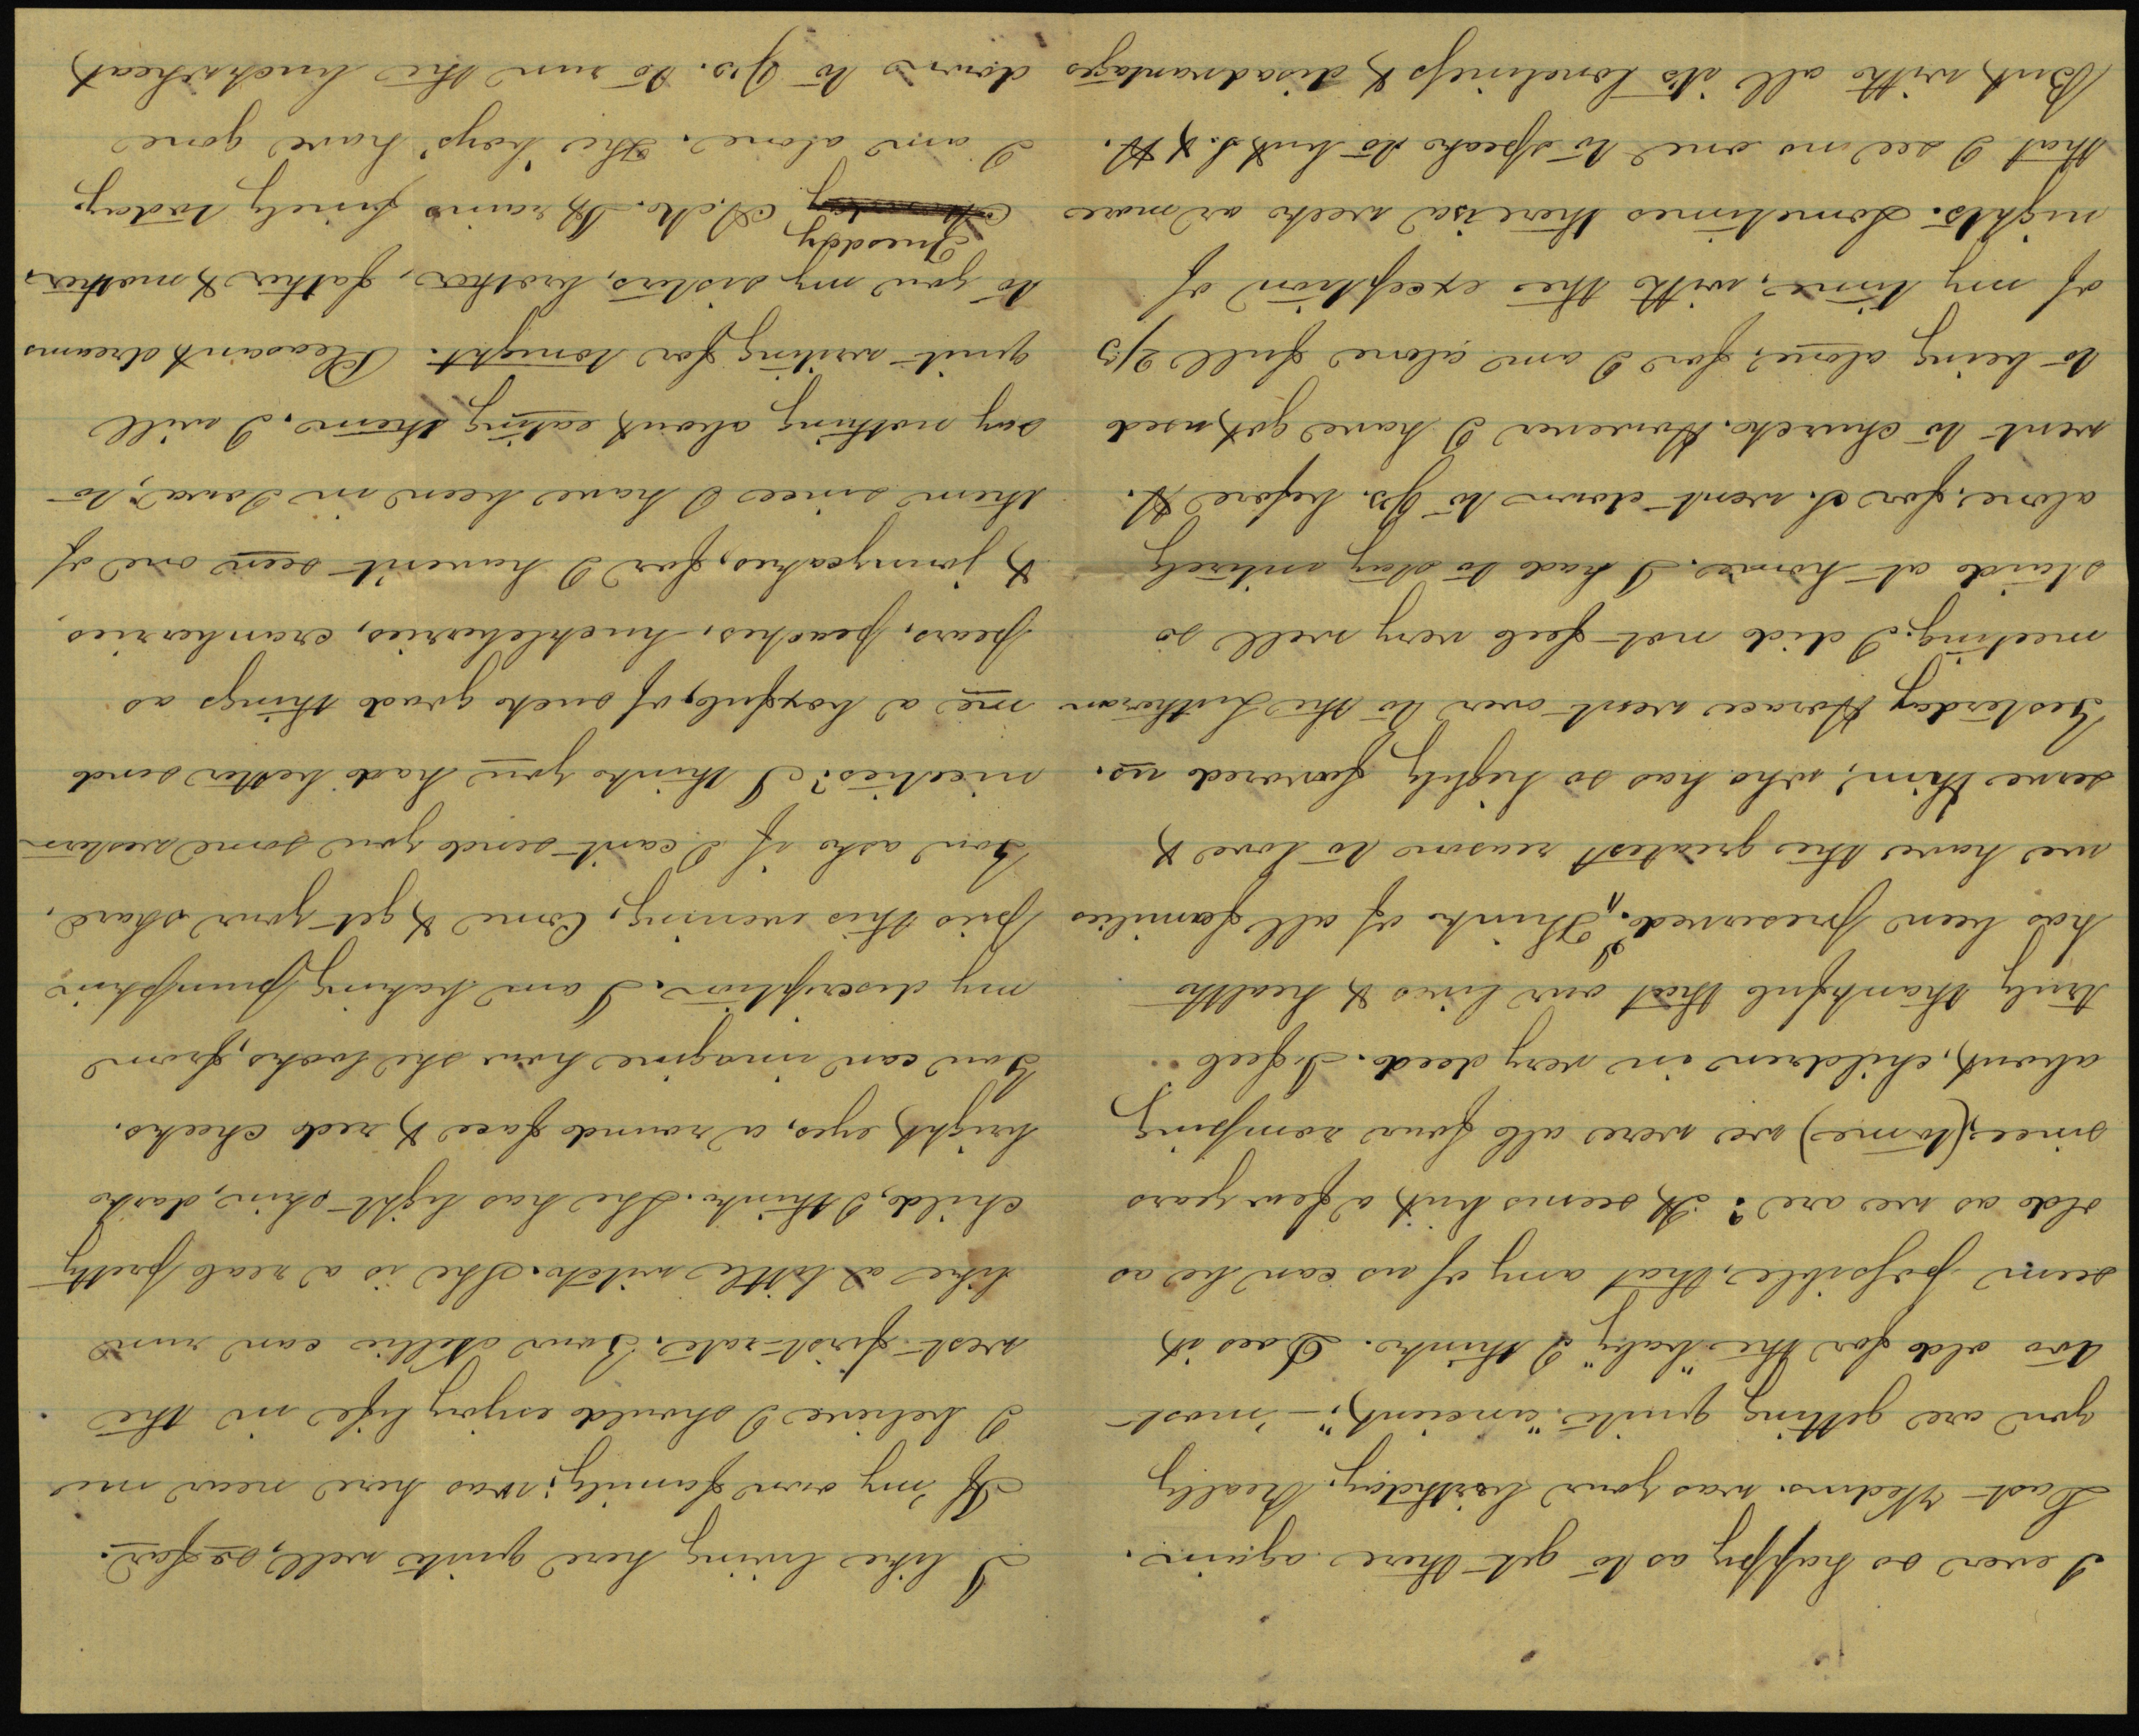 I ever so happy as to get there again.
Last Wednes. was your birthday. Really
you are getting quite "ancient," – 'most
too old for the "baby" I think. Does it
seem possible, that any of us can be as
old as we are? It seems but a few years
since, (to me) we were all four romping
about, children in very deed. I feel
truly thankful that our lives & health
has been preserved. I Think of all families
we have the greatest reason to love &
serve Him, who has so highly favored us.
Yesterday Horace went over to the Lutheran
meeting. I did not feel very well so
staid at home. I had to stay entirely
alone, for S. went down to G's. before H.
went to church. However I have got used
to being alone, for I am alone full 2/3
of my time, with the exception of
nights. Sometimes there is a week or more
that I see no one to speak to but S. & H.
But, with all its loneliness & disadvantages
I like living here quite well, so far.
If my own family, was here near me
I believe I should enjoy life in the
west first-rate. Your Nellie can run
like a little witch. She is a real pretty
child, I think. She has light skin, dark
bright eyes, a round face & red cheeks.
You can imagine how she looks, from
my discription. I am baking pumpkin
pies this evening, Come & get your share.
You ask if I can't send you some western
niceties? I think you had better send
me a boxful, of such good things as
pears, peaches, huckleberries, cranberries
& jonnycakes, for I haven't seen one of
them since I have been in Iowa, to
say nothing about eating them. I will
quit writing for tonight. Pleasant dreams
to you my sisters, brother, father & mother.
Tuesday
A.ch. It rains finely today.
I am alone. The 'boys' have gone
down to G's. to run the buckwheat,